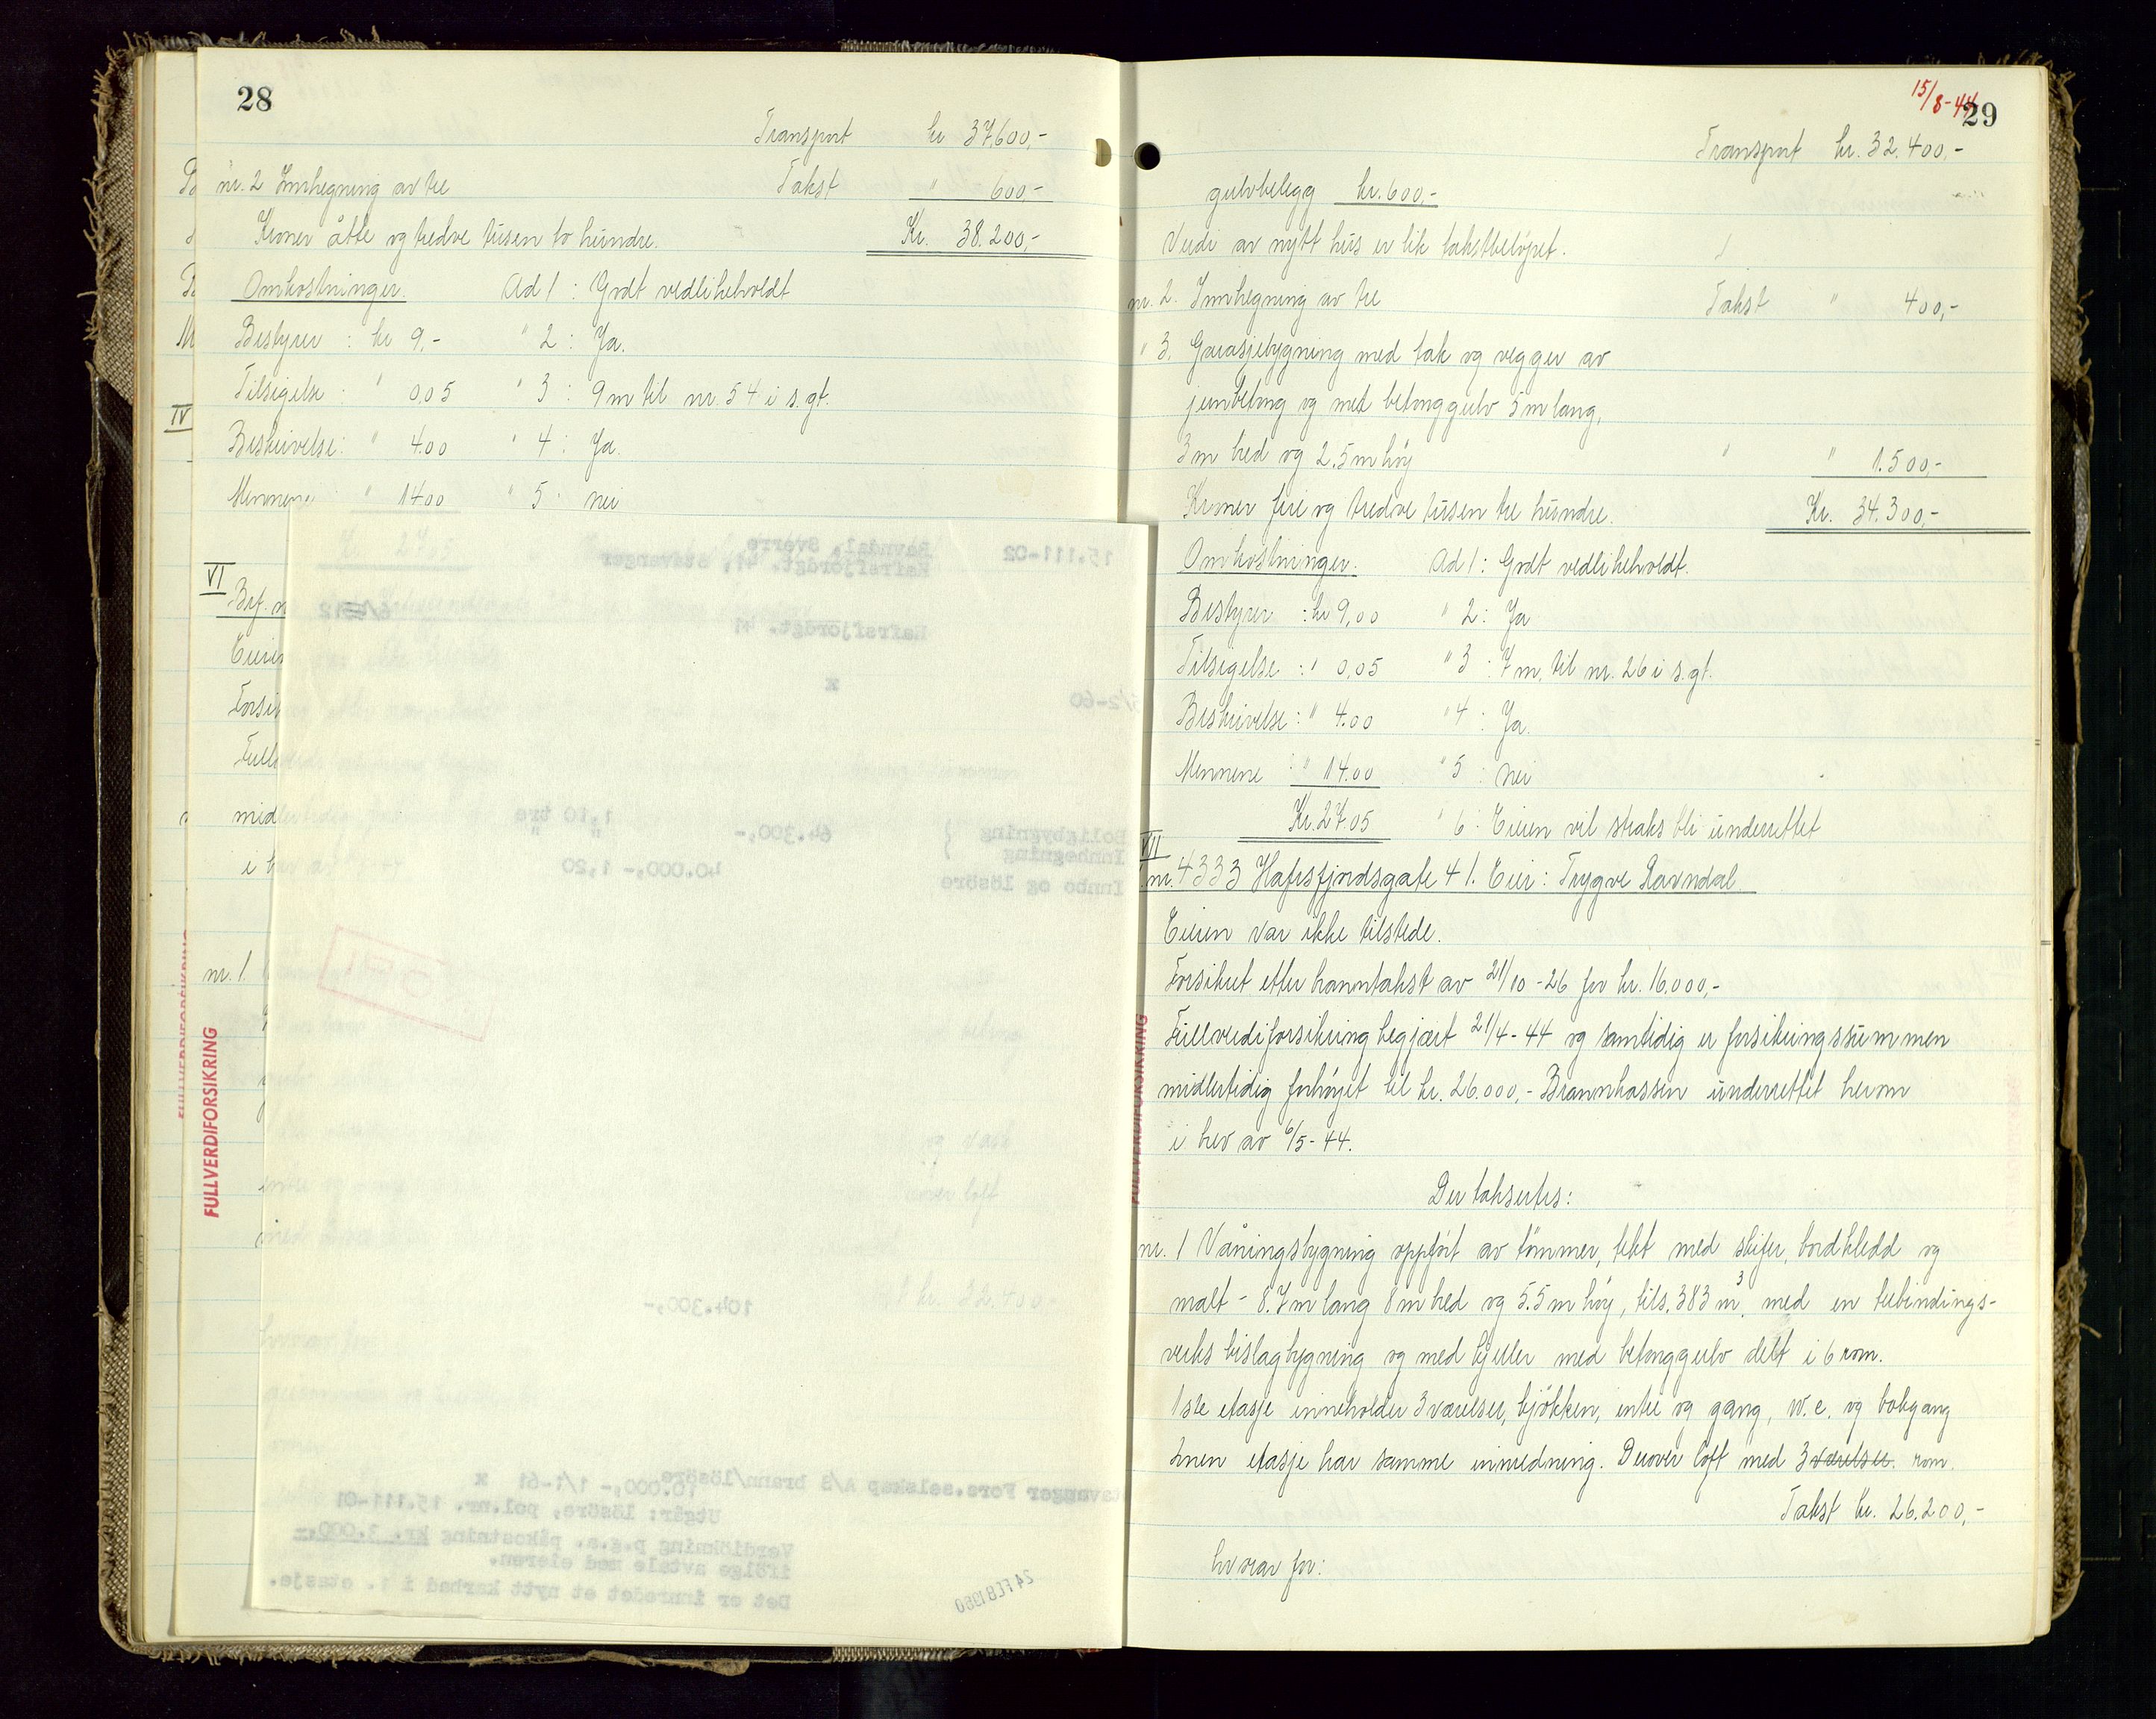 28
Transport kr 37.600,-
nr. 2 Innhegning av tre Takst " 600,-
Kroner åtte og tredve tusen to hundre. Kr. 38.200,-
Omkostninger. Ad 1 : Godt vedlikeholdt
Bestyrer : kr 9,- " 2 : Ja.
Tilsigelse : " 0,05 " 3 : 9 m til nr. 54 i s. gt.
Beskrivelse : " 4.00 " 4 : Ja.
Mennene " 14.00 " 5 : nei
Kr. 27,05
IV
VI
nr. 1.
FULLVERDIFORSIKRING
15.111-02
Ravndal, Sverre
Hafrsfjordgt. 41, Stavanger
Hafrsfjordgt. 41
x
/2-60
Boligbygning } 64.300,- 1,10 tre
Innhegning "
Innbo og lösöre, 40.000,- 1,20
104.300,-
Stavanger Fors.selskap A/S brann/lösöre 10.000,- 1/1-61 x
Utgår: lösöre, pol.nr. 15.111-01
Verdiökning p.g.a. påkostning kr. 3.000,-
ifölge avtale med eieren.
Det er innredet et nytt karbad i 1. etasje.
24 FEB 1960
15/8-44
29
Transport kr. 32.400,-
gulvbelegg kr. 600,-
Verdi av nytt hus er lik takstbeløpet.
nr. 2. Innhegning av tre Takst " 400,-
" 3. Garasjebygning med tak og vegger av
jernbetong og med betonggulv 5 m lang,
3 m bred og 2.5 m høy " " 1.500,-
Kroner fire og tredve tusen tre hundre. Kr. 34.300,-
Omkostninger. Ad 1 : Godt vedlikeholdt.
Bestyrer : kr 9,00 " 2 : Ja
Tilsigelse : " 0,05 " 3 : 7 m, til nr. 26 i s. gt.
Beskrivelse : " 4.00 " 4 : Ja.
Mennene : " 14.00 " 5 : nei
Kr. 27.05 " 6 : Eieren vil straks bli underrettet
VII
nr. 4333 Hafrsfjordsgate 41. Eier : Trygve Ravndal.
Eieren var ikke tilstede.
Forsikret etter branntakst av 21/10 - 26 for kr. 16.000,-
Fullverdiforsikring begjært 21/4 - 44 og samtidig er forsikringssummen
midlertidig forhøyet til kr. 26.000,- Brannkassen underrettet herom
i brev av 6/5 - 44.
FULLVERDIFORSIKRING
Der takseres :
nr. 1 Våningsbygning oppført av tømmer, tekt med skifer, bordkledd og
malt - 8.7 m lang 8 m bred og 5.5 m høy, tils. 383 m³, med en trebindings-
verks bislagbygning og med kjeller med betonggulv delt i 6 rom.
1ste etasje inneholder 3 værelser, kjøkken, entre og gang, w.c. og bakgang
2nen etasje har samme innredning. Derover loft med 3 værelser. rom.
Takst kr. 26.200,-
hvorav for :